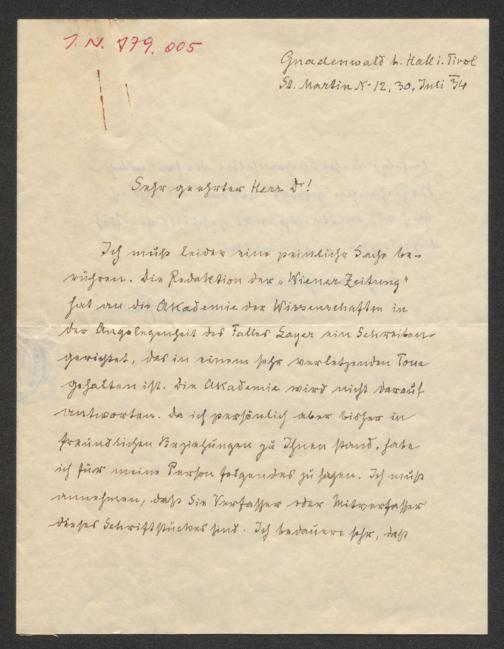 J. N. 879.005
Gnadenwald b. Hall i. Tirol
St. Martin Nr 12, 30, Juli 34
Sehr geehrter Herr Dr!
Ich muß leider eine peinliche Sache be-
rühren. Die Redaktion der „Wiener Zeitung“
hat an die Akademie der Wissenschaften in
der Angelegenheit des Falles ein Schreiben
gerichtet, das in einem sehr verletzenden Tone
gehalten ist. Die Akademie wird nicht darauf
antworten. Da ich persönlich aber bisher in
freundlichen Beziehungen zu Ihnen stand, habe
ich für meine Person folgendes zu sagen. Ich muß
annehmen, daß Sie Verfasser oder Mitverfasser
dieses Schriftstückes sind. Ich bedauere sehr, daß